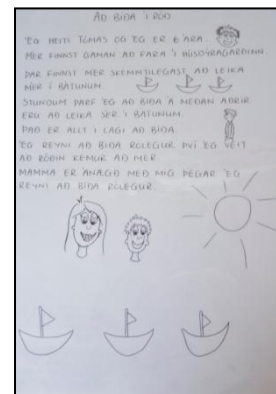 AÐ BÍÐA Í RÖÐ
ÉG HEITI TÓMAS OG ÉG ER 6 ÁRA.
MÉR FINNST GAMAN AÐ FARA Í HÚSDÝRAGARÐINN
ÞAR FINNST MÉR SKEMMTILEGAST AÐ LEIKA
MÉR Í BÁTUNUM
STUNDUM ÞARF ÉG AÐ BÍÐA Á MEÐAN AÐRIR
ERU AÐ LEIKA SÉR Í BÁTUNUM
ÞAÐ ER ALLT Í LAGI AÐ BÍÐA.
ÉG REYNI AÐ BÍÐA RÓLEGUR ÞVÍ ÉG VEIT
AÐ RÖÐIN KEMUR AÐ MÉR
MAMMA ER ÁNÆGÐ MEÐ MIG ÞEGAR ÉG
REYNI AÐ BÍÐA RÓLEGUR